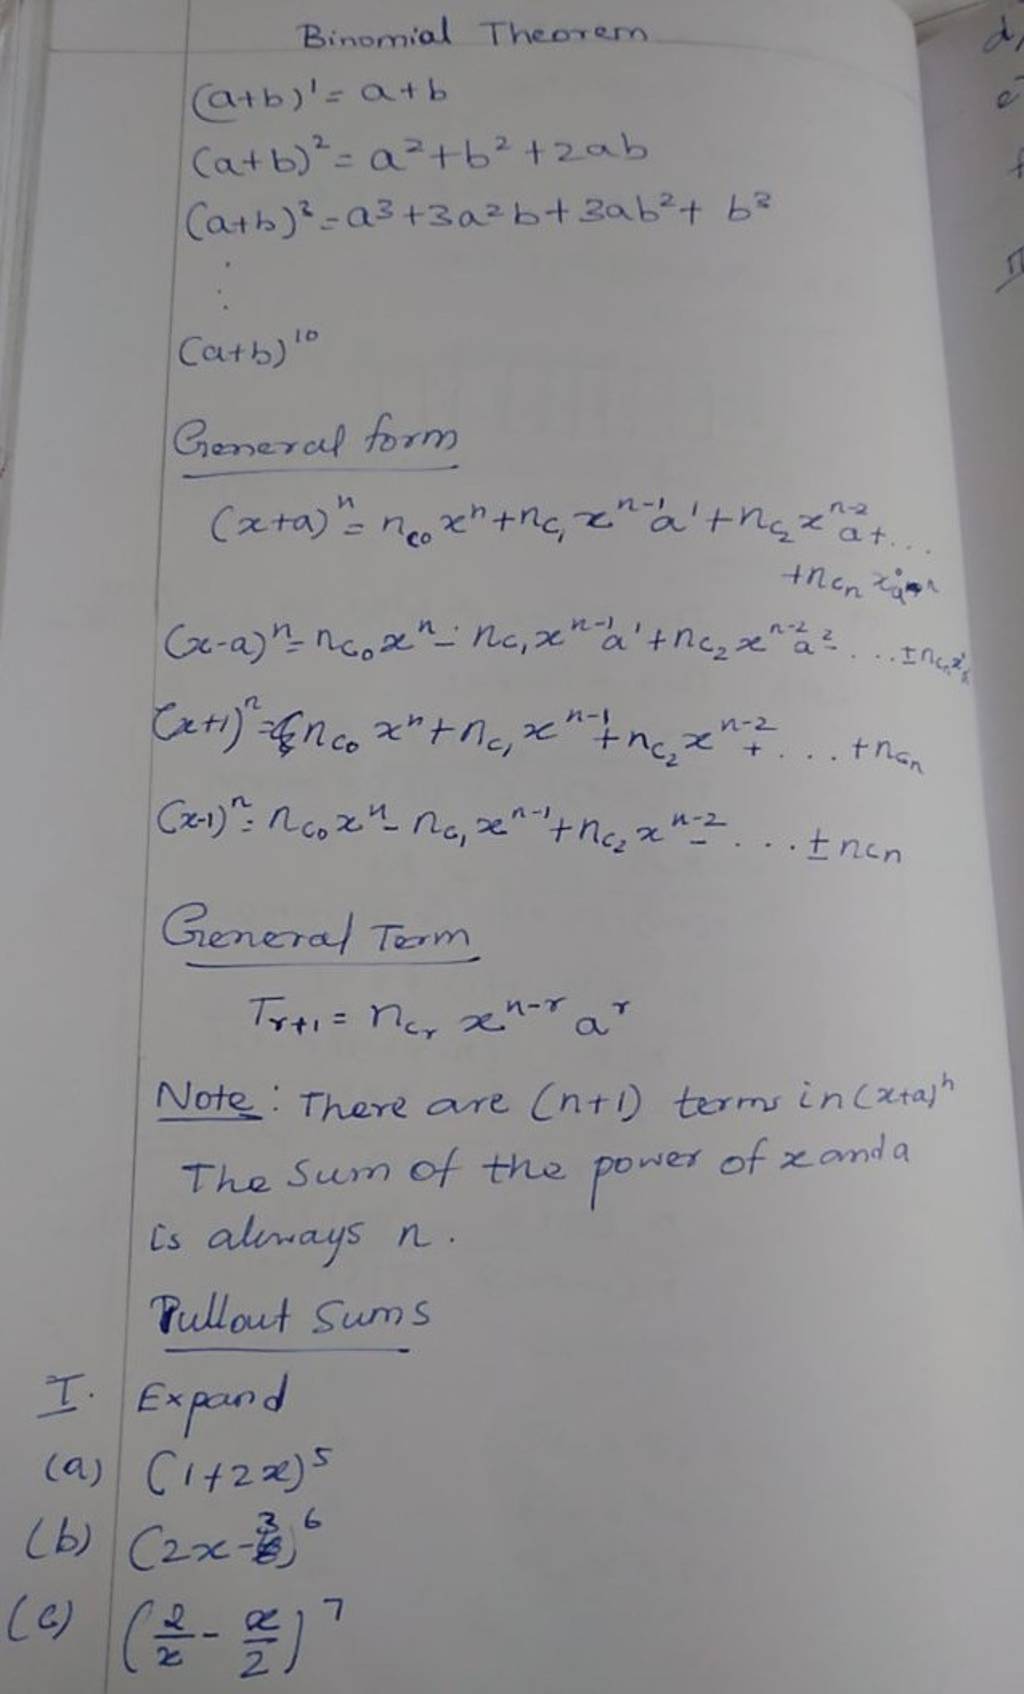 Binomial Theorem
(a+b)¹ = a+b
(a+b)² = a²+b²+2ab
(a+b)³ = a³+3a²b+3ab²+ b³
.
.
(a+b)¹⁰
General form
(x+a)ⁿ = nc₀ xⁿ + nc₁ xⁿ⁻¹a¹ + nc₂ xⁿ⁻² a + ...
+ncₙ x⁰aⁿ
(x-a)ⁿ = nc₀xⁿ - nc₁xⁿ⁻¹a¹ + nc₂ xⁿ⁻²a² - ... ±ncₙx⁰
(x+1)ⁿ = nc₀ xⁿ + nc₁ xⁿ⁻¹ + nc₂ xⁿ⁻² + ... + ncₙ
(x-1)ⁿ = nc₀ xⁿ - nc₁ xⁿ⁻¹ + nc₂ xⁿ⁻² - ... ± ncₙ
General Term
Tᵣ₊₁ = ncᵣ xⁿ⁻ʳ aʳ
Note: There are (n+1) terms in (x+a)ⁿ
The Sum of the power of x and a
is always n.
Pullout Sums
I. Expand
(a) (1+2x)⁵
(b) (2x-3)⁶
(c) (2/x - x/2)⁷